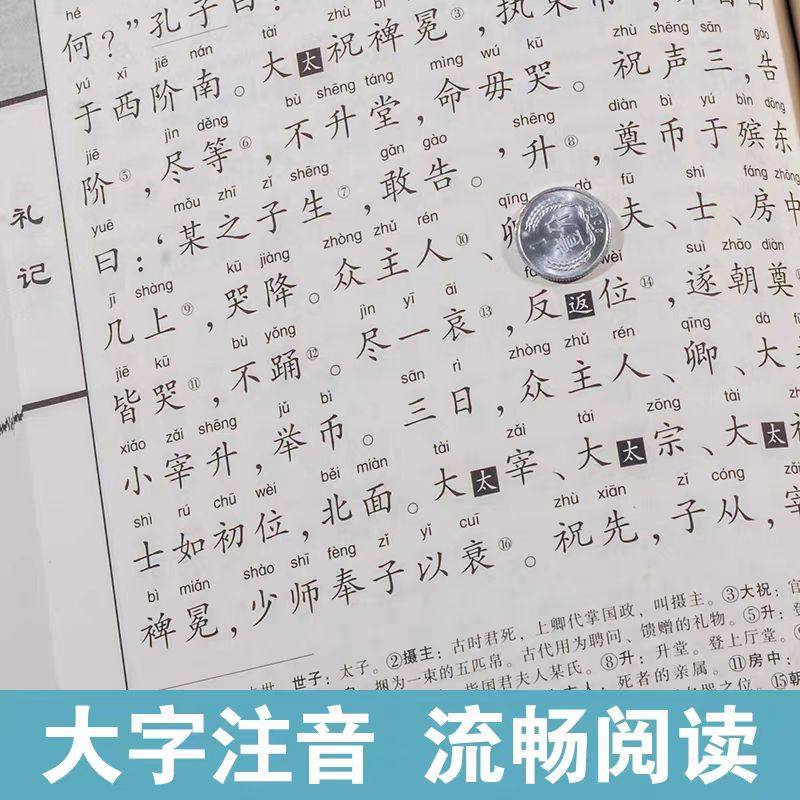 hé zhù bì miǎn
何？”孔子曰：
大太祝裨冕③，执束帛，
yú xī jiē nán tài
于西阶南。
jiē jìn děng bù shēng táng mìng wú kū zhù shēng sān gào
阶⑤，尽等⑥，不升堂，命毋哭。祝声三，告
yuē mǒu zhī zǐ shēng gǎn gào shēng diàn bì yú bìn dōng
曰：‘某之子生⑦，敢告。’升⑧，奠币于殡东
jī shàng kū jiàng zhòng zhǔ rén qīng dà fū shì fáng zhōng
几上⑨，哭降。众主人⑩、卿、大夫、士、房中
jiē kū bù yǒng jìn yī āi fǎn wèi suì zhāo diàn
皆哭⑪，不踊⑫。尽一哀⑬，反返位⑭，遂朝奠
xiǎo zǎi shēng jǔ bì sān rì zhòng zhǔ rén qīng dà fū
小宰升，举币。三日，众主人、卿、大夫
shì rú chū wèi běi miàn tài zǎi tài zōng tài zhù
士如初位，北面。大太宰、大太宗、大太祝
bì miǎn shào shī fèng zǐ yǐ cuī zhù xiān zǐ cóng zǎi
裨冕，少师奉子以衰⑯。祝先，子从，宰
礼记
世子：太子。②摄主：古时君死，上卿代掌国政，叫摄主。③大祝：官
捆为一束的五匹帛。古代用为聘问、馈赠的礼物。⑤升：登
指国君夫人某氏。⑧升：升堂。登上厅堂。
死者的亲属。⑪房中：
之位。⑮朝
大字注音 流畅阅读